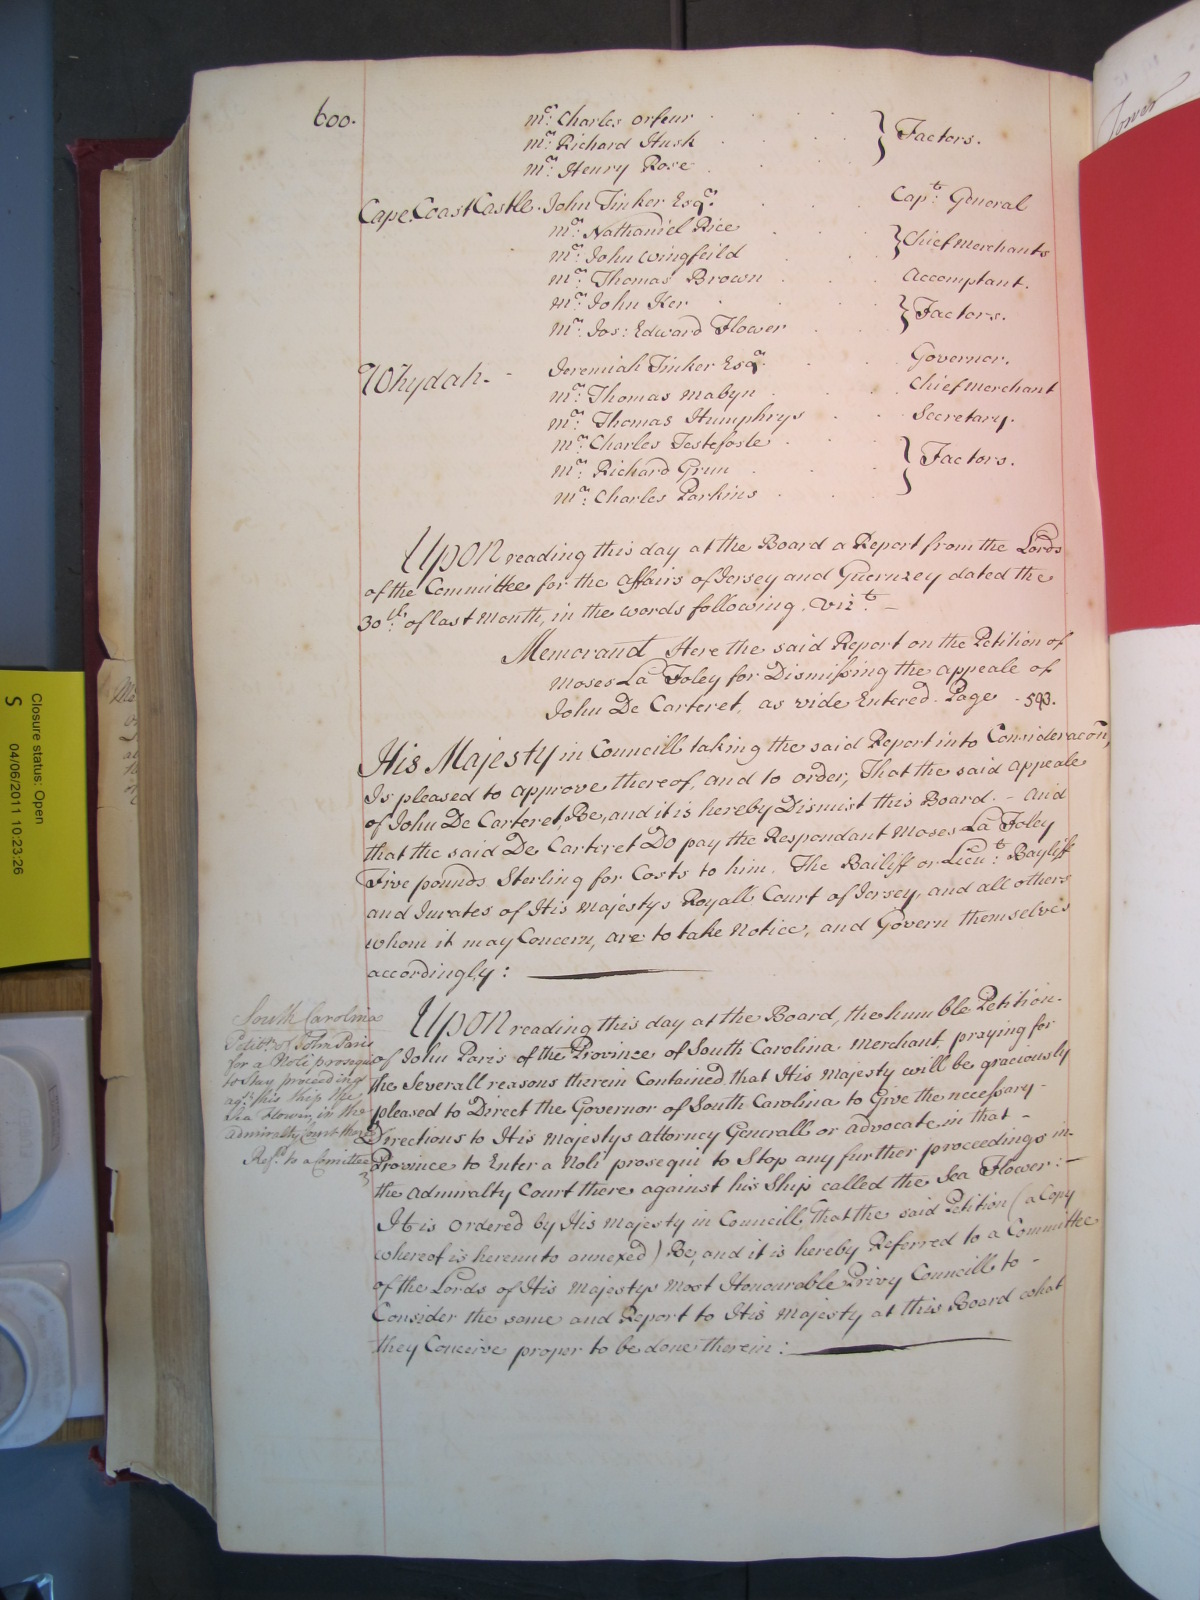 600.
Mr: Charles Orfeur
Mr: Richard Husk } Factors.
Mr: Henry Rose
Cape Coast Castle. John Tinker Esqr. Capt: General
Mr: Nathaniel Rice
Mr: John Wingfeild } Chief Merchants
Mr: Thomas Brown Accomptant.
Mr: John Ker
Mr: Jos: Edward Flower } Factors.
Whydah. - Jeremiah Tinker Esqr. Governor.
Mr: Thomas Mabyn Chief Merchant
Mr: Thomas Humphrys Secretary.
Mr: Charles Testefole
Mr: Richard Grun } Factors.
Mr: Charles Parkins
Upon reading this day at the Board a Report from the Lords
of the Committee for the Affairs of Jersey and Guernzey dated the
30th: of last Month, in the words following. Vizt: -
Memorand Here the said Report on the Petition of
Moses La Foley for Dismissing the appeale of
John De Carteret, as vide Entered Page - 593.
His Majesty in Councill taking the said Report into Consideracon,
Is pleased to approve thereof, and to order, That the said appeale
of John De Carteret, Be, and it is hereby Dismist this Board. - And
that the said De Carteret Do pay the Respondant Moses La Foley
Five pounds Sterling for Costs to him. The Bailiff or Lieut: Bayliff
and Jurates of His Majestys Royall Court of Jersey, and all others
whom it may Concern, are to take Notice, and Govern themselves
accordingly:
South Carolina
Petitn: of John Paris
for a Noli prosequi
to Stay proceeding
agt: his ship the
Sea Flower in the
Admiralty Court there
Refd. to a Comittee
3
Upon reading this day at the Board, the humble Petition.
of John Paris of the Province of South Carolina Merchant praying for
the Severall reasons therein Contained, that His Majesty will be graciously
pleased to Direct the Governor of South Carolina to Give the necessary -
Directions to His Majestys Attorney Generall or Advocate in that -
Province to Enter a Noli prosequi to Stop any further proceedings in
the Admiralty Court there against his Ship called the Sea Flower: -
It is Ordered by His Majesty in Councill, that the said Petition (a Copy
whereof is hereunto annexed) Be, and it is hereby Referred to a Committee
of the Lords of His Majestys most Honourable Privy Councill to -
Consider the same and Report to His Majesty at this Board what
they Conceive proper to be done therein:
Closure status: Open
S 04/06/2011 10:23:26